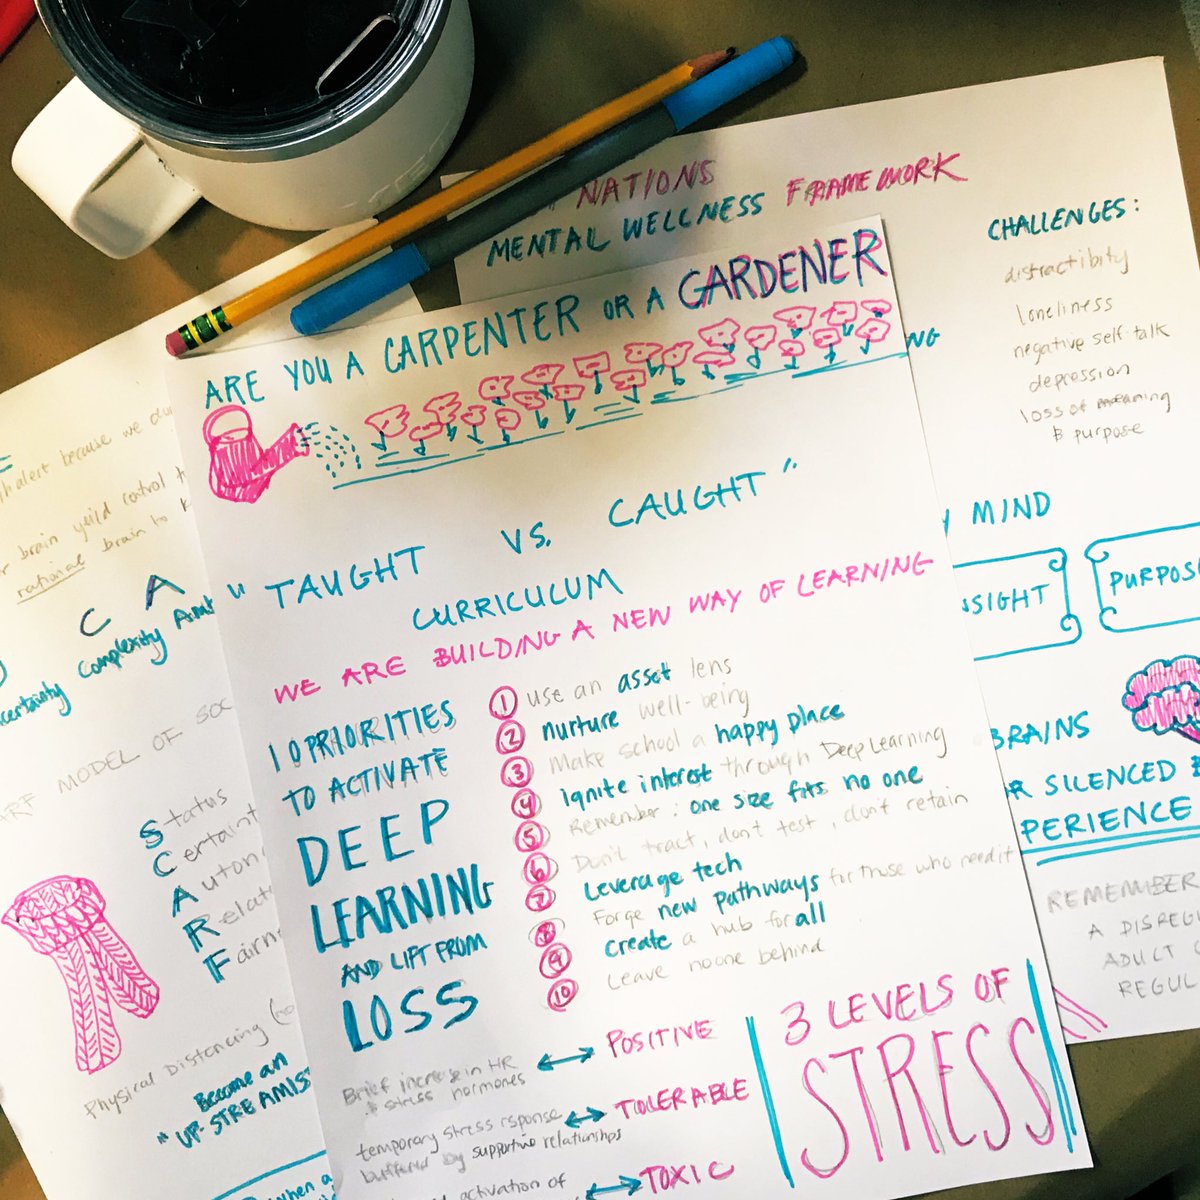 ARE YOU A CARPENTER OR A GARDENER
"TAUGHT VS. CAUGHT"
CURRICULUM
WE ARE BUILDING A NEW WAY OF LEARNING
10 PRIORITIES
TO ACTIVATE
DEEP
LEARNING
AND LIFT FROM
LOSS
1 use an asset lens
2 nurture well-being
3 Make school a happy place
4 ignite interest through Deep Learning
5 Remember: one size fits no one
6 Don't tract, don't test, don't retain
7 Leverage tech
8 Forge new pathways for those who need it
9 create a hub for all
10 Leave no one behind
3 LEVELS OF
STRESS
POSITIVE
Brief increase in HR
& stress hormones
TOLERABLE
temporary stress rsponse
buffered by supportive relationships
TOXIC
activation of
NATIONS
MENTAL WELLNESS FRAMEWORK
CHALLENGES:
distractibity
loneliness
negative self talk
depression
loss of meaning
& purpose
NG
MIND
NSIGHT
PURPOS
BRAINS
R SILENCED B
PERIENCE
REMEMBER
A DISREG
ADULT C
REGUL
alert because we
brain yeild control t
rational brain to
C A
certainty Complexity Amb
MODEL OF SOC
Status
Certaint
Auton
Relat
Fairn
Physical Distancing
Become an
"UP-STREAMIS
when a